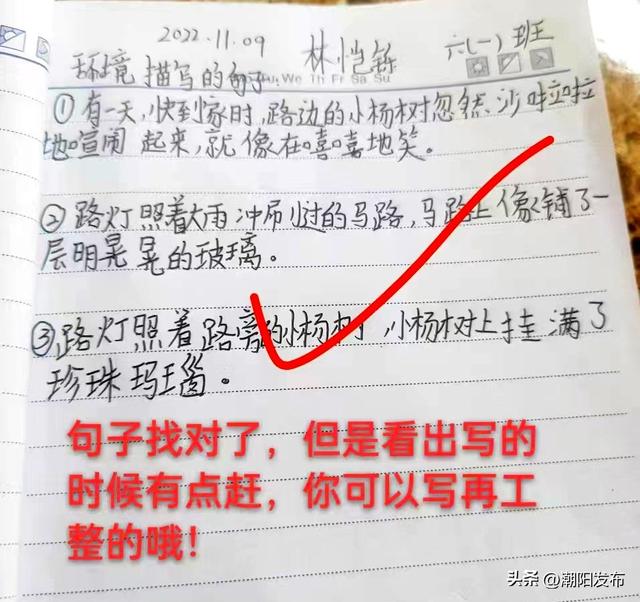 2022.11.09 林恺铄 六(一)班
We Th Fr Sa Su
环境描写的句子:
①有一天,快到家时,路边的小杨树忽然沙啦啦
地喧闹起来,就像在嘻嘻地笑。
②路灯照着大雨冲刷过的马路,马路上像铺了一
层明晃晃的玻璃。
③路灯照着路的小杨树,小杨树上挂满了
珍珠玛瑙。
句子找对了,但是看出写的
时候有点赶,你可以写再工
整的哦!
头条 @潮阳发布